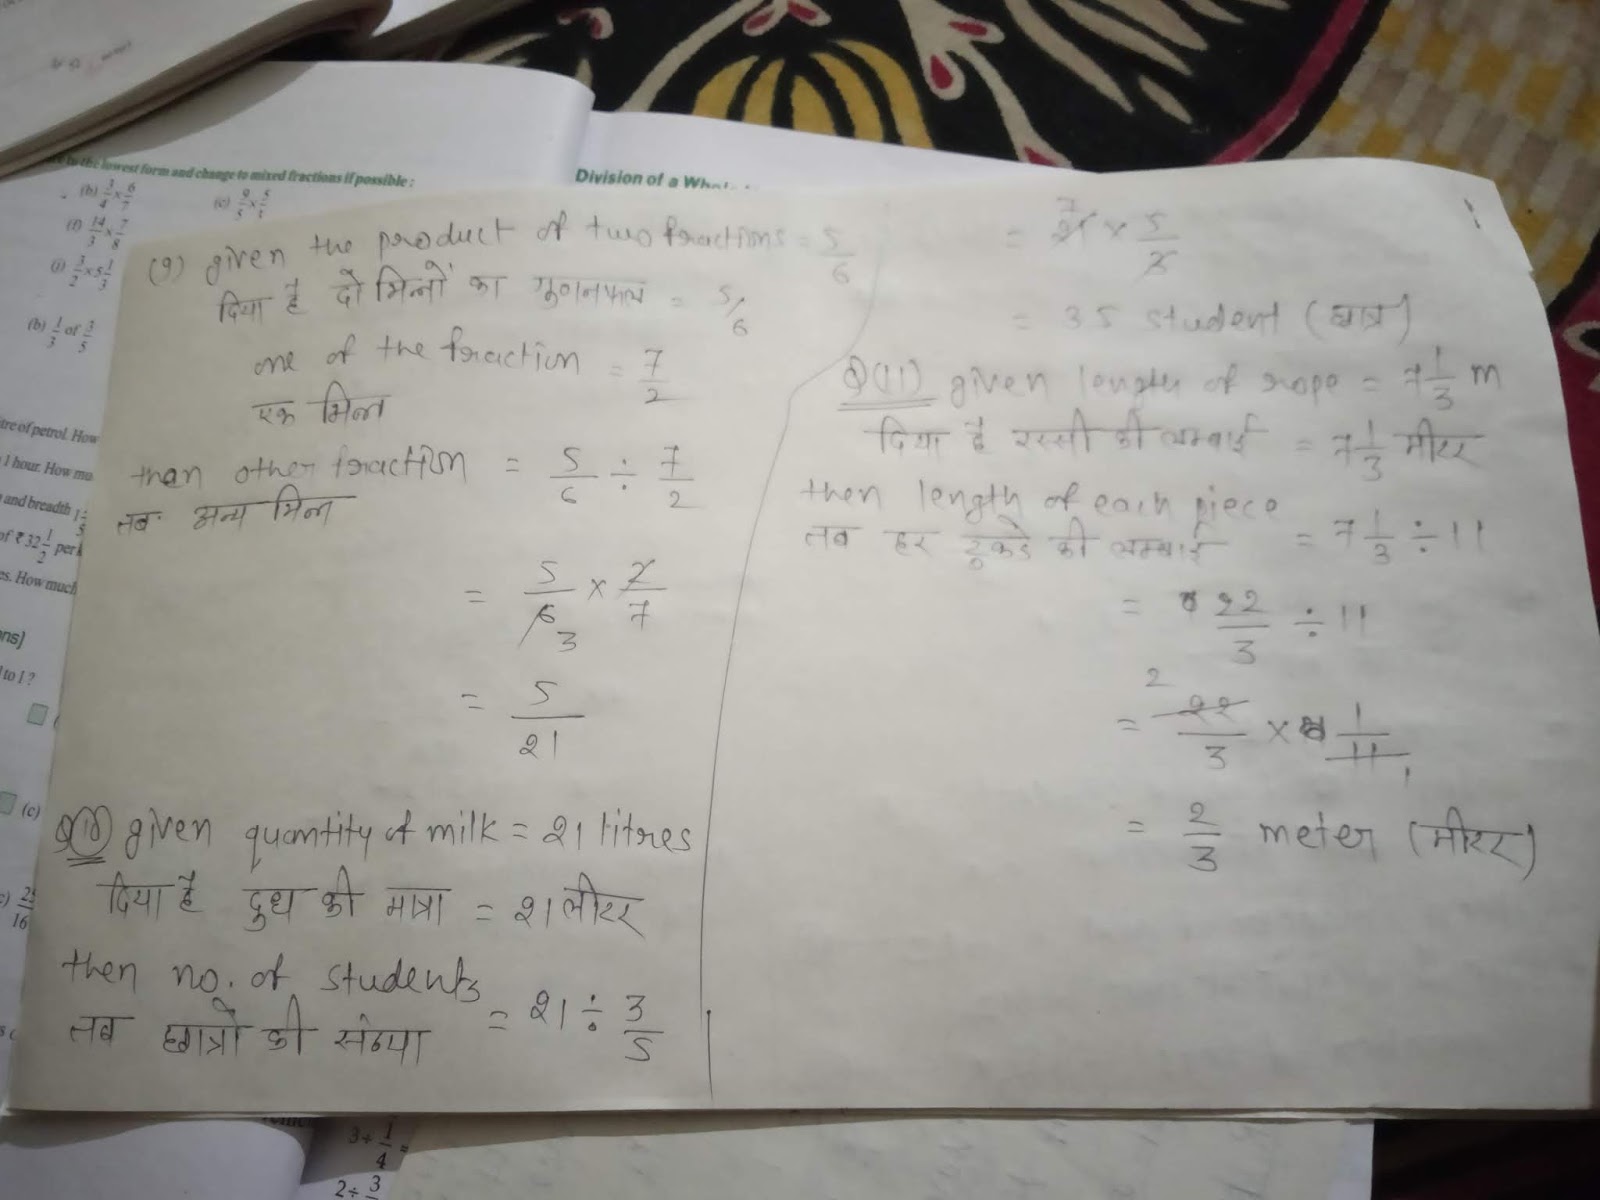 to the lowest form and change to mixed fractions if possible :
(b) 3/4 × 6/7
(c) 9/5 × 5/3
(f) 14/3 × 7/8
(i) 3/2 × 5 1/3
(b) 1/3 of 3/5
litre of petrol. How
1 hour. How mu
and breadth 1
of ₹ 32 1/2 per
es. How much
ns)
to 1 ?
(c)
Division of a
(9) given the product of two fractions = 5/6
दिया है दो भिन्नों का गुणनफल = 5/6
one of the fraction = 7/2
एक भिन्न
then other fraction = 5/6 ÷ 7/2
तब अन्य भिन्न
= 5/6 × 2/7
3
= 5/21
Q(10) given quantity of milk = 21 litres
दिया है दुध की मात्रा = 21 लीटर
then no. of students = 21 ÷ 3/5
तब छात्रो की संख्या
= 21 × 5/3
7
= 35 student (छात्र)
Q(11) given length of rope = 7 1/3 m
दिया है रस्सी की लम्बाई = 7 1/3 मीटर
then length of each piece
तब हर टुकडे की लम्बाई = 7 1/3 ÷ 11
= 22/3 ÷ 11
2
= 22/3 × 1/11
1
= 2/3 meter (मीटर)
3 ÷ 1/4 =
2 ÷ 3